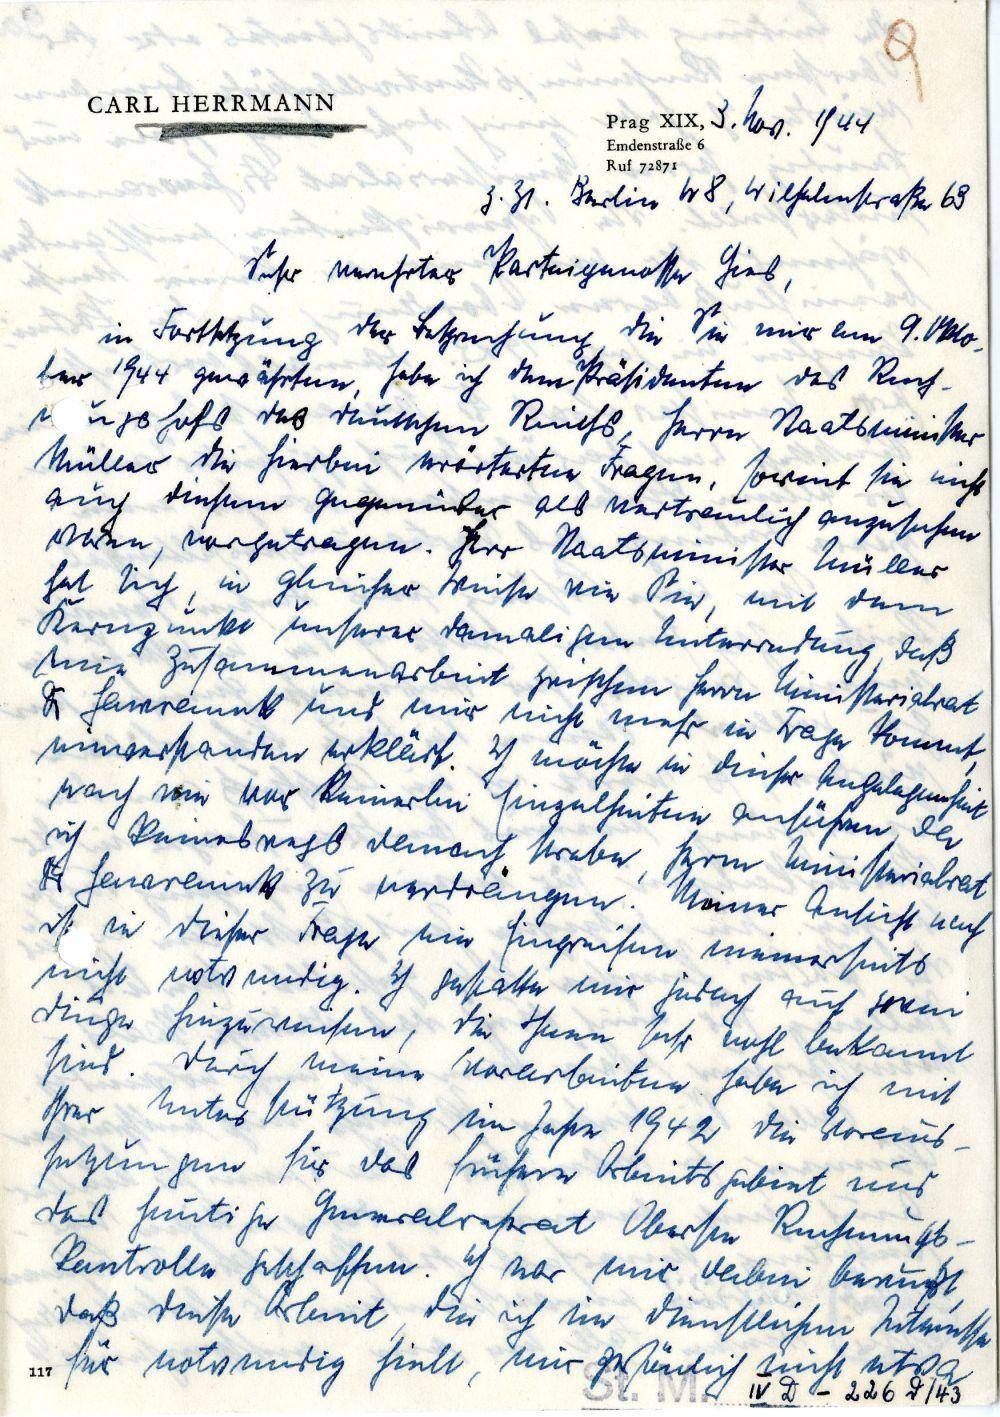 CARL HERRMANN
Prag XIX, 3. Nov. 1944
Emdenstraße 6
Ruf 72871
z. Zt. Berlin W 8, Wilhelmstraße 63
Sehr verehrter Parteigenosse Gies,
in Fortsetzung der Besprechung, die Sie mir am 9. Okto-
ber 1944 gewährten, habe ich dem Präsidenten des Rech-
nungshofs des Deutschen Reichs, Herrn Staatsminister
Müller die hierbei erörterten Fragen, soweit sie nicht
auch diesem gegenüber als vertraulich anzusehen
waren, vorgetragen. Herr Staatsminister Müller
hat sich, in gleicher Weise wie Sie, mit dem
Kernpunkt unserer damaligen Unterredung, daß
eine Zusammenarbeit zwischen Herrn Ministerialrat
Dr und mir nicht mehr in Frage kommt,
einverstanden erklärt. Ich möchte in dieser Angelegenheit
nach wie vor keinerlei Einzelheiten anführen, da
ich keineswegs danach strebe, Herrn Ministerialrat
Dr zu verdrängen. Meiner Ansicht nach
ist in dieser Frage ein Eingreifen meinerseits
nicht notwendig. Ich gestatte mir jedoch auf zwei
Dinge hinzuweisen, die Ihnen sehr wohl bekannt
sind. Durch meine Vorarbeiten habe ich mit
Ihrer Unterstützung im Jahre 1942 die Voraus-
setzungen für das frühere Arbeitsgebiet und
das heutige Generalreferat Oberste Rechnungs-
kontrolle geschaffen. Ich war mir dabei bewußt,
daß diese Arbeit, die ich im dienstlichen Interesse
für notwendig hielt, mir persönlich nicht etwa
117
St. M. IV D - 226 d/43